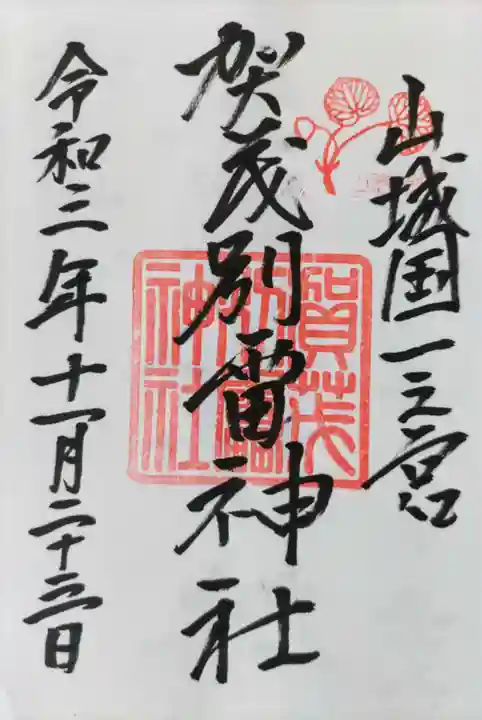 山城国一之宮
賀茂別雷神社
賀茂別雷神社
令和三年十一月二十三日